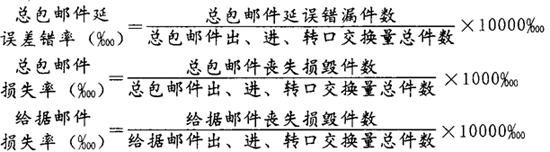 总包邮件延
误差错率（‱）
=
总包邮件延误错漏件数
总包邮件出、进、转口交换量总件数
×10000‱
总包邮件
损失率（‱）
=
总包邮件丧失损毁件数
总包邮件出、进、转口交换量总件数
×1000‱
给据邮件
损失率（‱）
=
给据邮件丧失损毁件数
给据邮件出、进、转口交换量总件数
×10000‱